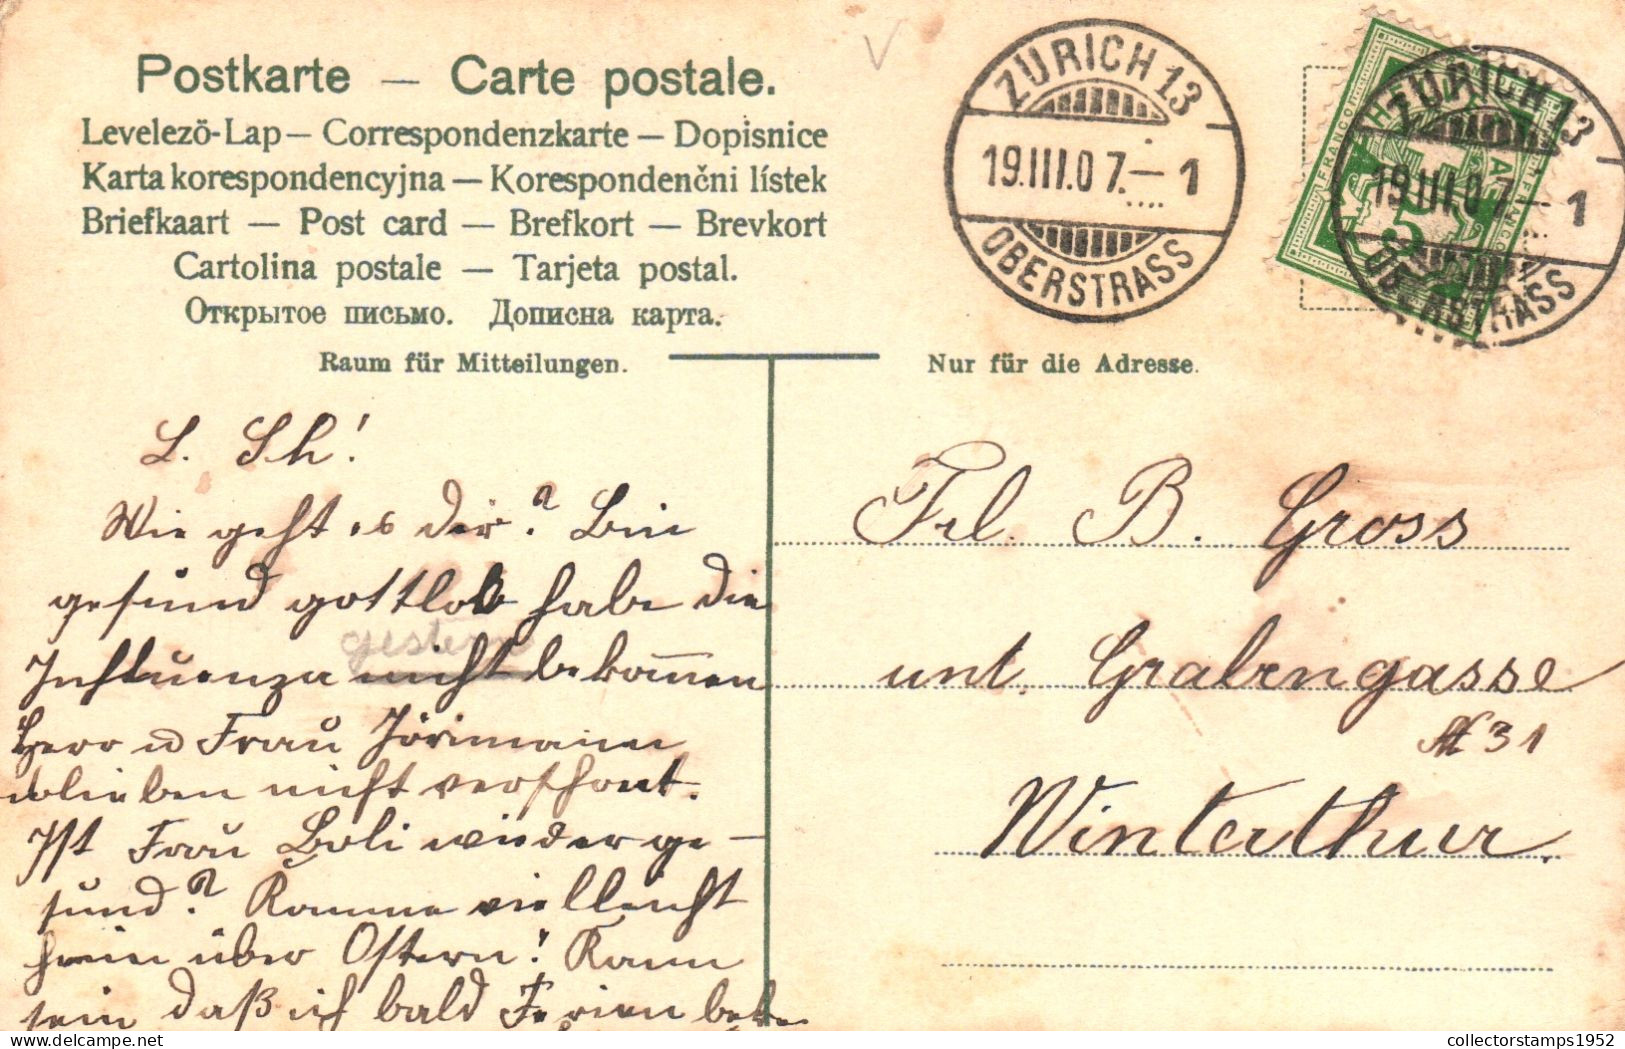 Postkarte — Carte postale.
Levelező-Lap — Correspondenzkarte — Dopisnice
Karta korespondencyjna — Korespondenčni lístek
Briefkaart — Post card — Brefkort — Brevkort
Cartolina postale — Tarjeta postal.
Открытое письмо. Дописна карта.
Raum für Mitteilungen.
Nur für die Adresse.
ZÜRICH 13
19.III.07.–1
OBERSTRASS
ZÜRICH 13
19.III.07–1
OBERSTRASS
FRANCO
5
L. Sch!
Wie geht es dir? Bin
gesund gottlob habe die
gestern
Influenza nicht bekom̅en
Herr u Frau Jörimann
blieben nicht verschont.
Ist Frau Boli wieder ge-
sund? Komme vielleicht
heim über Ostern! Kann
sein daß ich bald Ferien
Frl. B. Gross
unt. Grabengasse
№ 31
Winterthur.
collectorstamps1952
delcampe.net